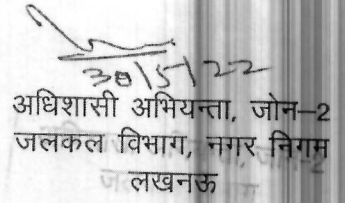 30/5/22
अधिशासी अभियन्ता, जोन–2
जलकल विभाग, नगर निगम
लखनऊ